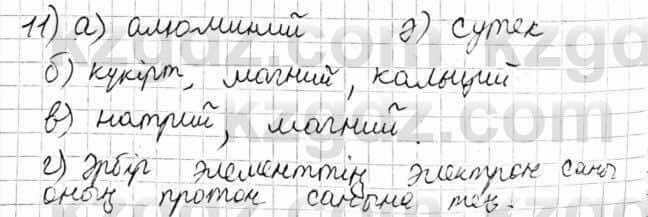 11) а) алюминий ә) сутек
б) күкірт, магний, кальций
в) натрий, магний.
г) Әрбір элементтің электрон саны
оның протон санына тең.